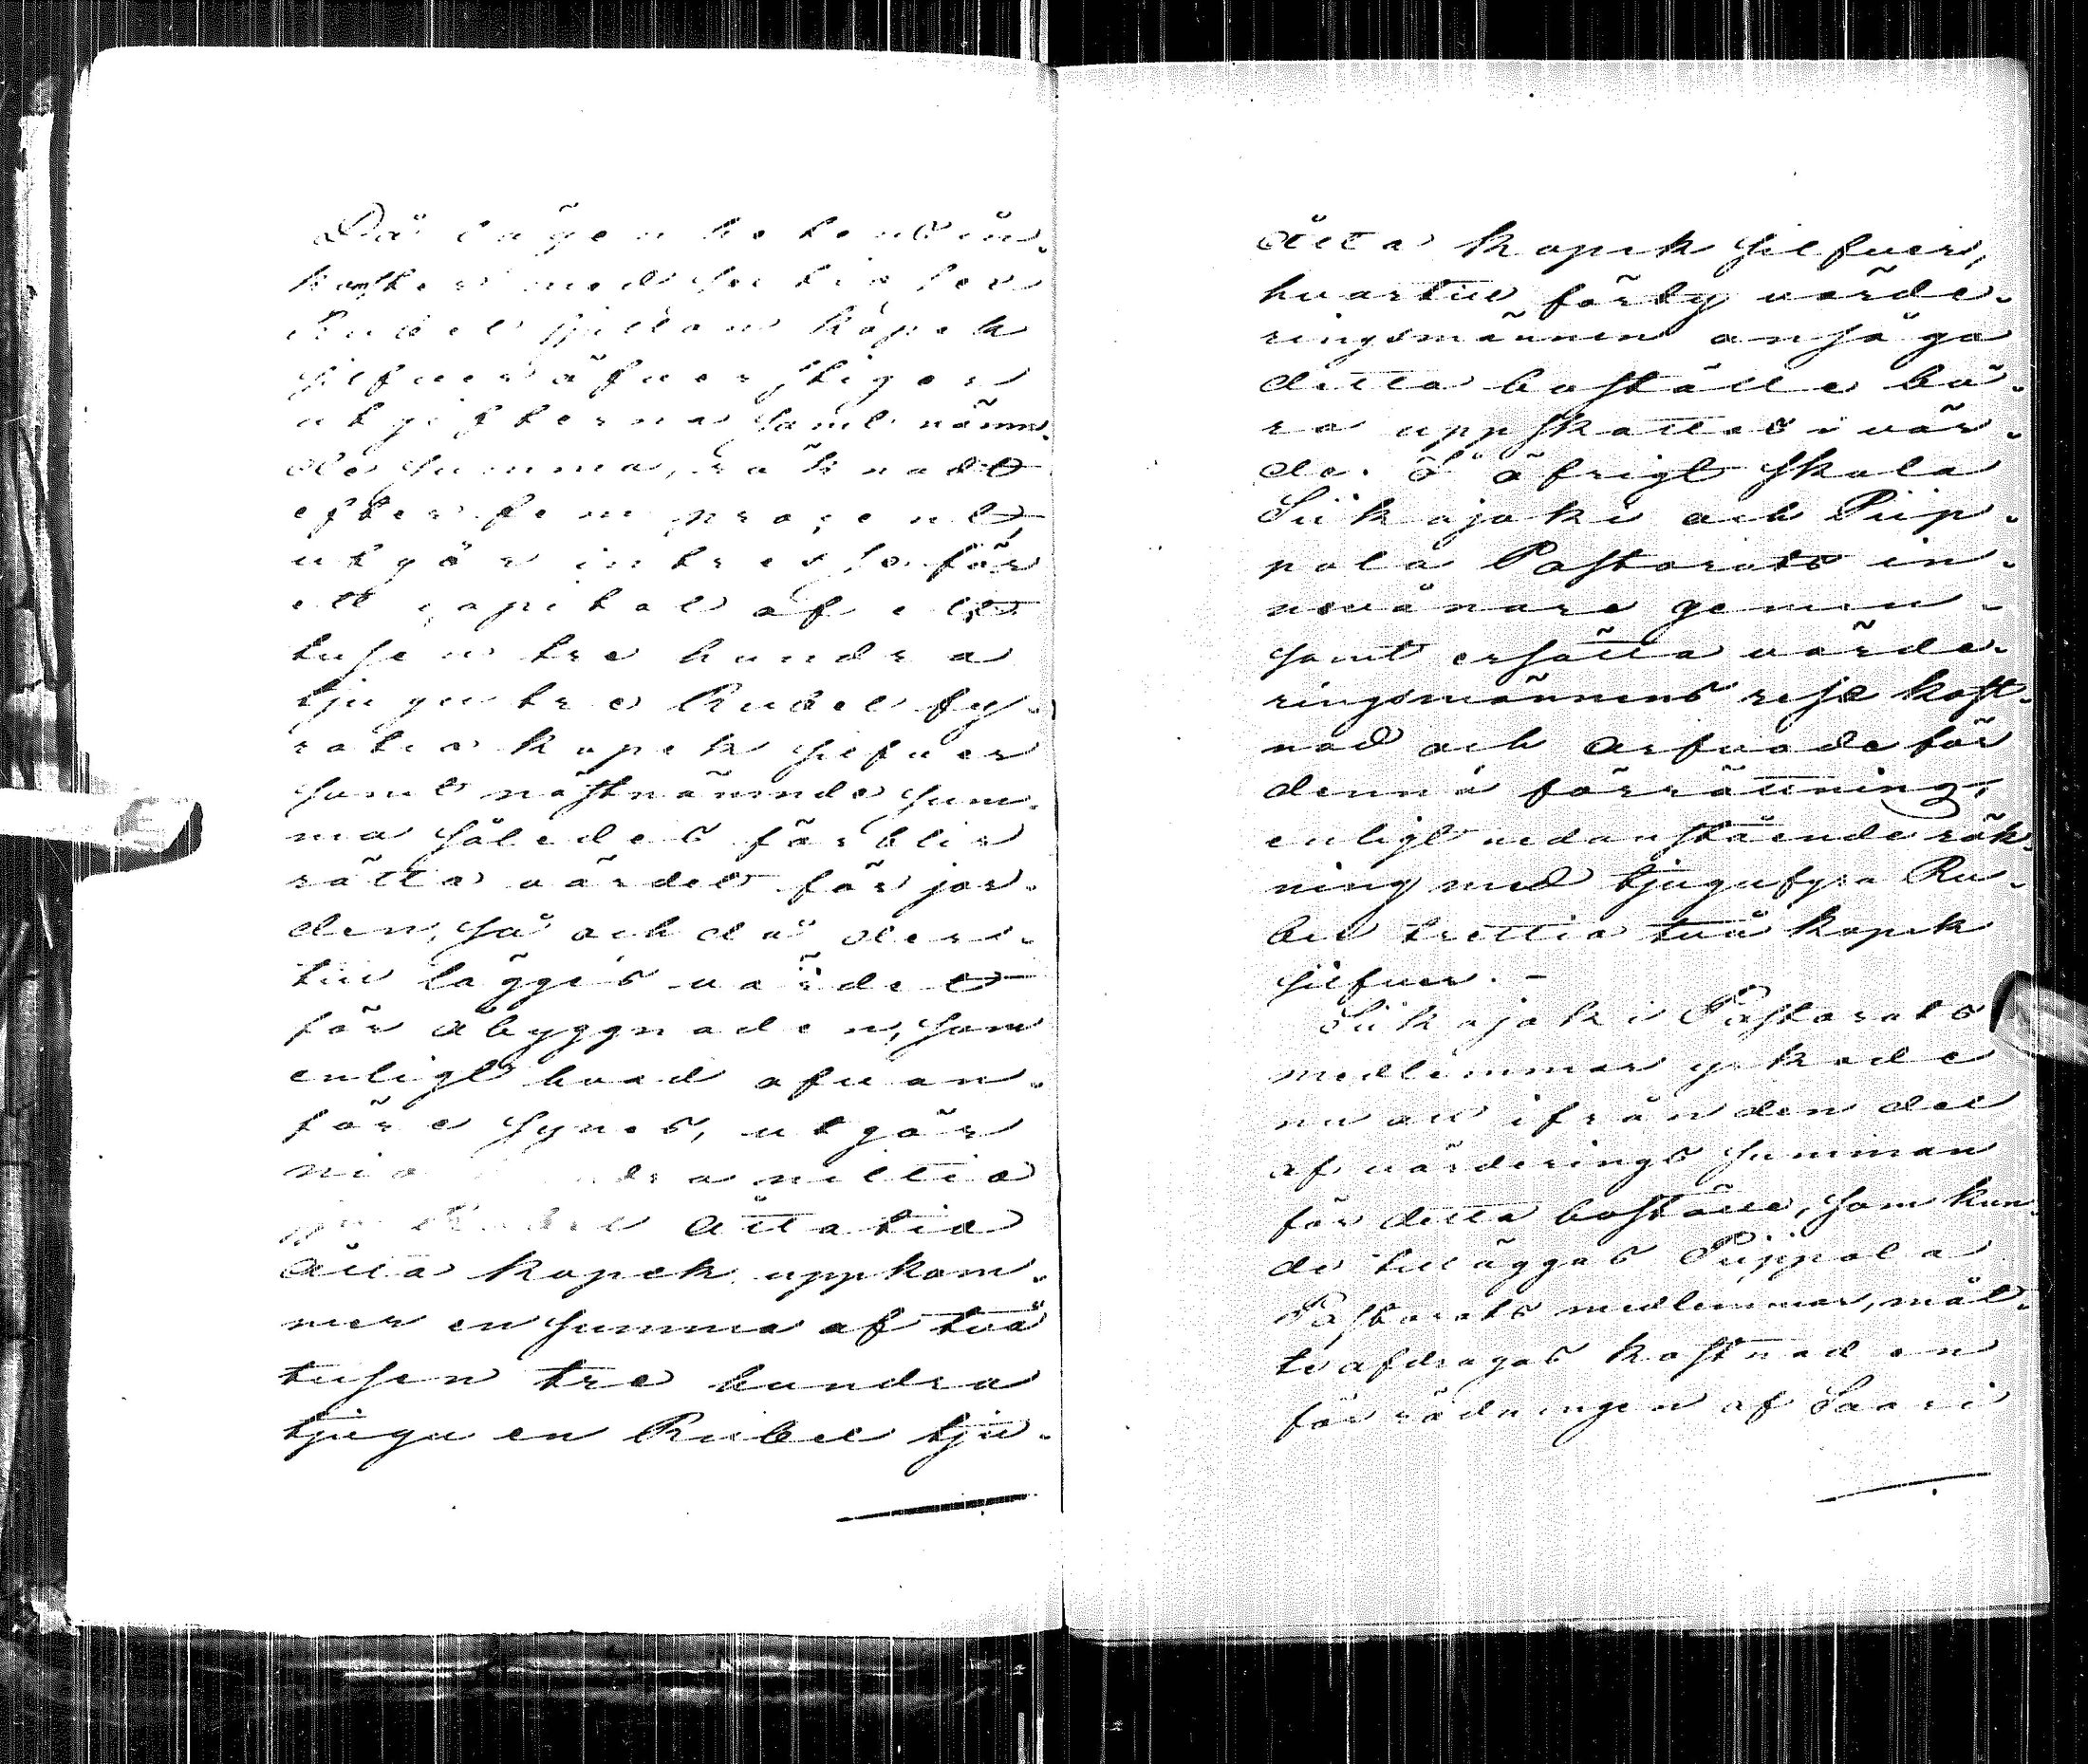 Då lägenhetens in-
komster med sextiosex
Rubel sjutton kopek
silfver öfverstiger
utgifterna samt nämn-
de summa, räknadt
efter fem procent
utgör intresse för
ett capital af ett
tusen tre hundra
tjugutre Rubel fy-
ratio kopek silfver
samt nästnämnde sum-
ma således förblir
rätta värdet för jor-
den, så och då der-
till lägges värdet
för åbyggnaden, som
enligt hvad ofvan-
före synes, utgör
nio hundra nittio
sju Rubel åttatio
åtta kopek uppkom-
mer en summa af två
tusen tre hundra
tjugu en Rubel tju-
åtta kopek silfver,
hvartill förty värde-
ringsmännen ansågo
detta boställe bö-
ra uppskattas i vär-
de. I öfrigt skola
Siikajoki och Piip-
pola Pastorats in-
nevånare gemen-
samt ersätta värde-
ringsmännens rese kost-
nad och arfvode för
denna förrättning,
enligt nedanstående räk-
ning med tjugufyra Ru-
bel trettio två kopek
silfver. -
Siikajoki Pastorats
medlemmar yrkade
nu att ifrån den del
af värderings summan
för detta boställe, som kun-
de tilläggas Piippola
Pastorats medlemmar, måt-
te afdragas kostnaden
för rödningen af Saari